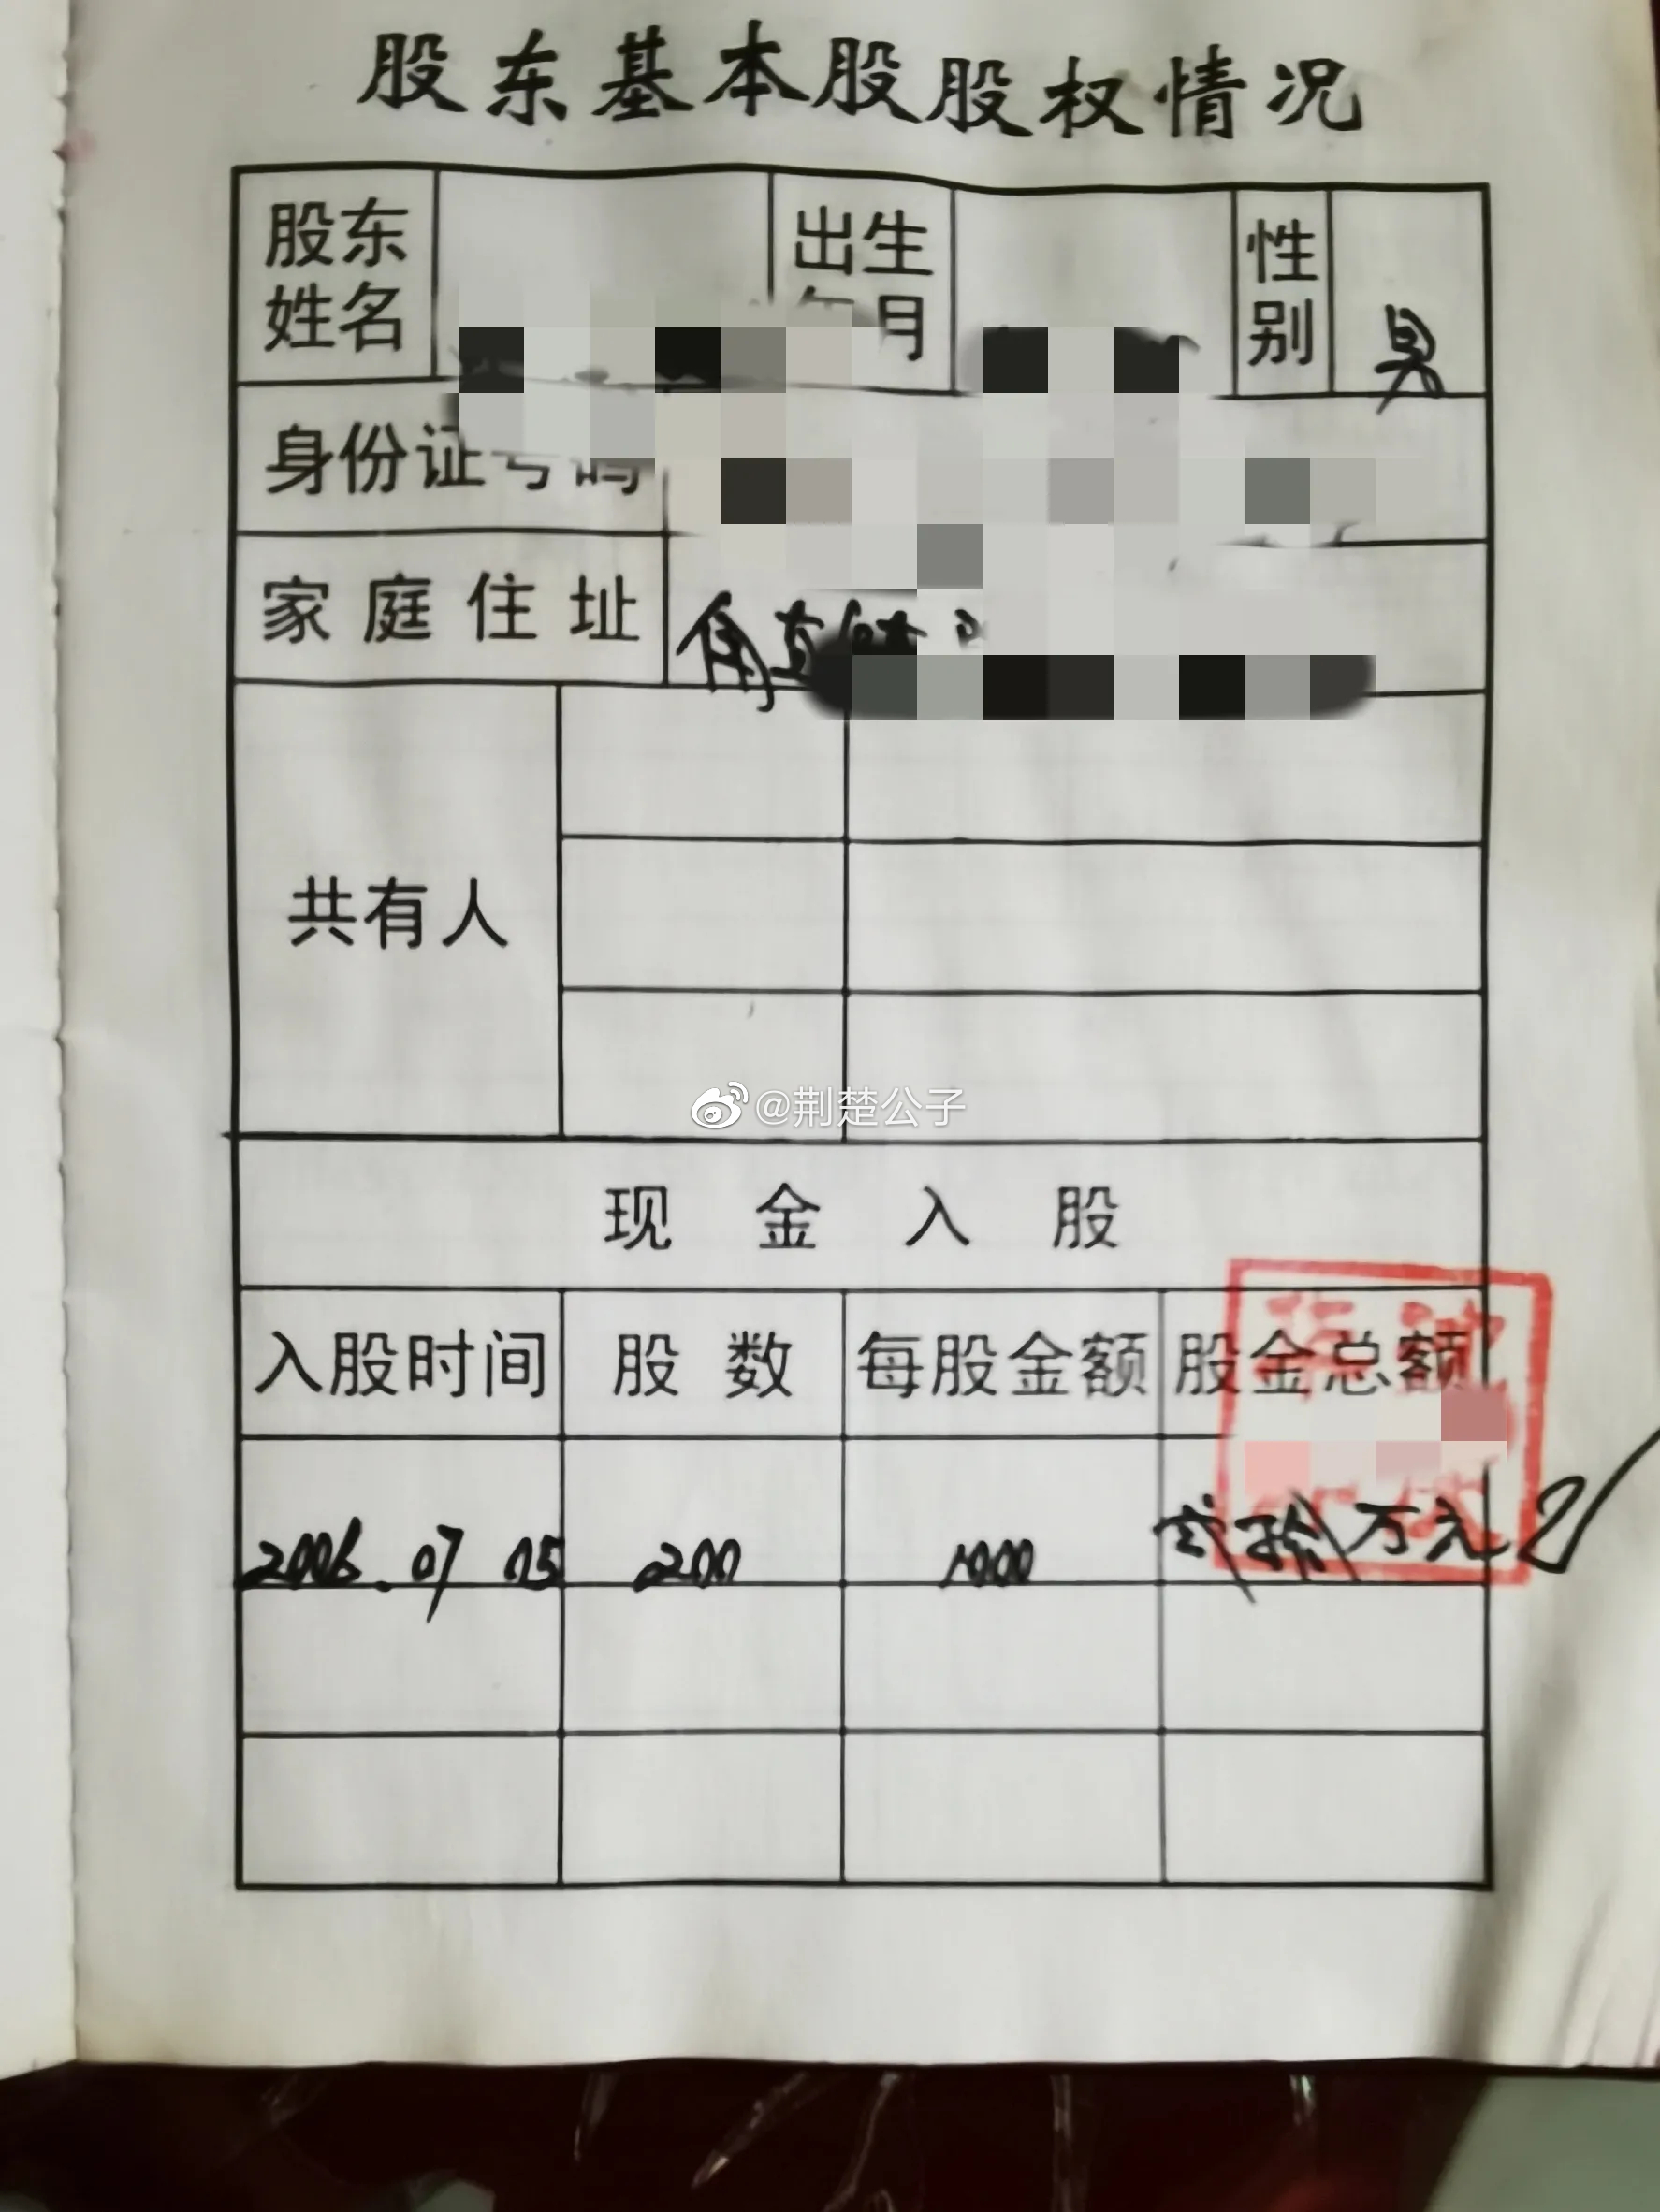 股东基本股股权情况
股东姓名 出生 月 性别 男
身份证号码
家庭住址
共有人
@荆楚公子
现金入股
入股时间 股数 每股金额 股金总额
2006.07 15 200 1000 贰拾万元